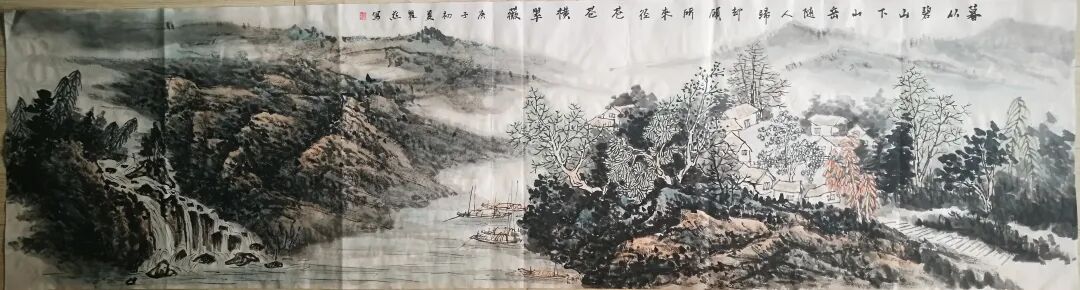 暮从碧山下山岳随人歸却顧所来径苍苍横翠微 庚子初夏 写